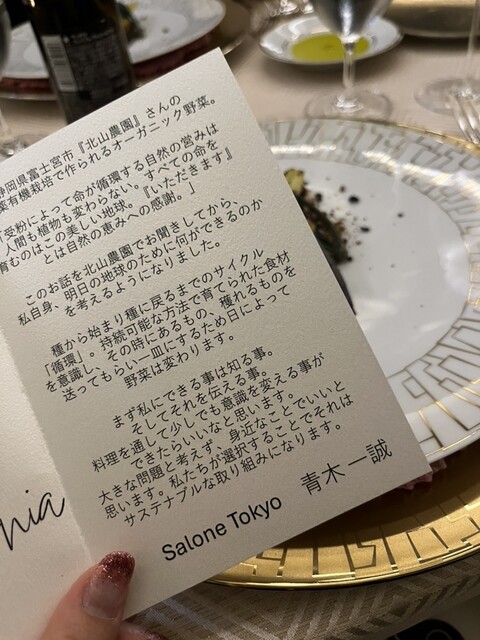 静岡県富士宮市『北山農園』さんの
薬有機栽培で作られるオーガニック野菜。
「受粉によって命が循環する自然の営みは
人間も植物も変わらない。すべての命を
育むのはこの美しい地球。『いただきます』
とは自然の恵みへの感謝。」
このお話を北山農園でお聞きしてから、
私自身、明日の地球のために何ができるのか
を考えるようになりました。
種から始まり種に戻るまでのサイクル
「循環」。持続可能な方法で育てられた食材
を意識し、その時にあるもの、穫れるものを
送ってもらい一皿にするため日によって
野菜は変わります。
まず私にできる事は知る事。
そしてそれを伝える事。
料理を通して少しでも意識を変える事が
できたらいいなと思います。
大きな問題と考えず、身近なことでいいと
思います。私たちが選択することでそれは
サステナブルな取り組みになります。
Salone Tokyo 青木一誠
nia